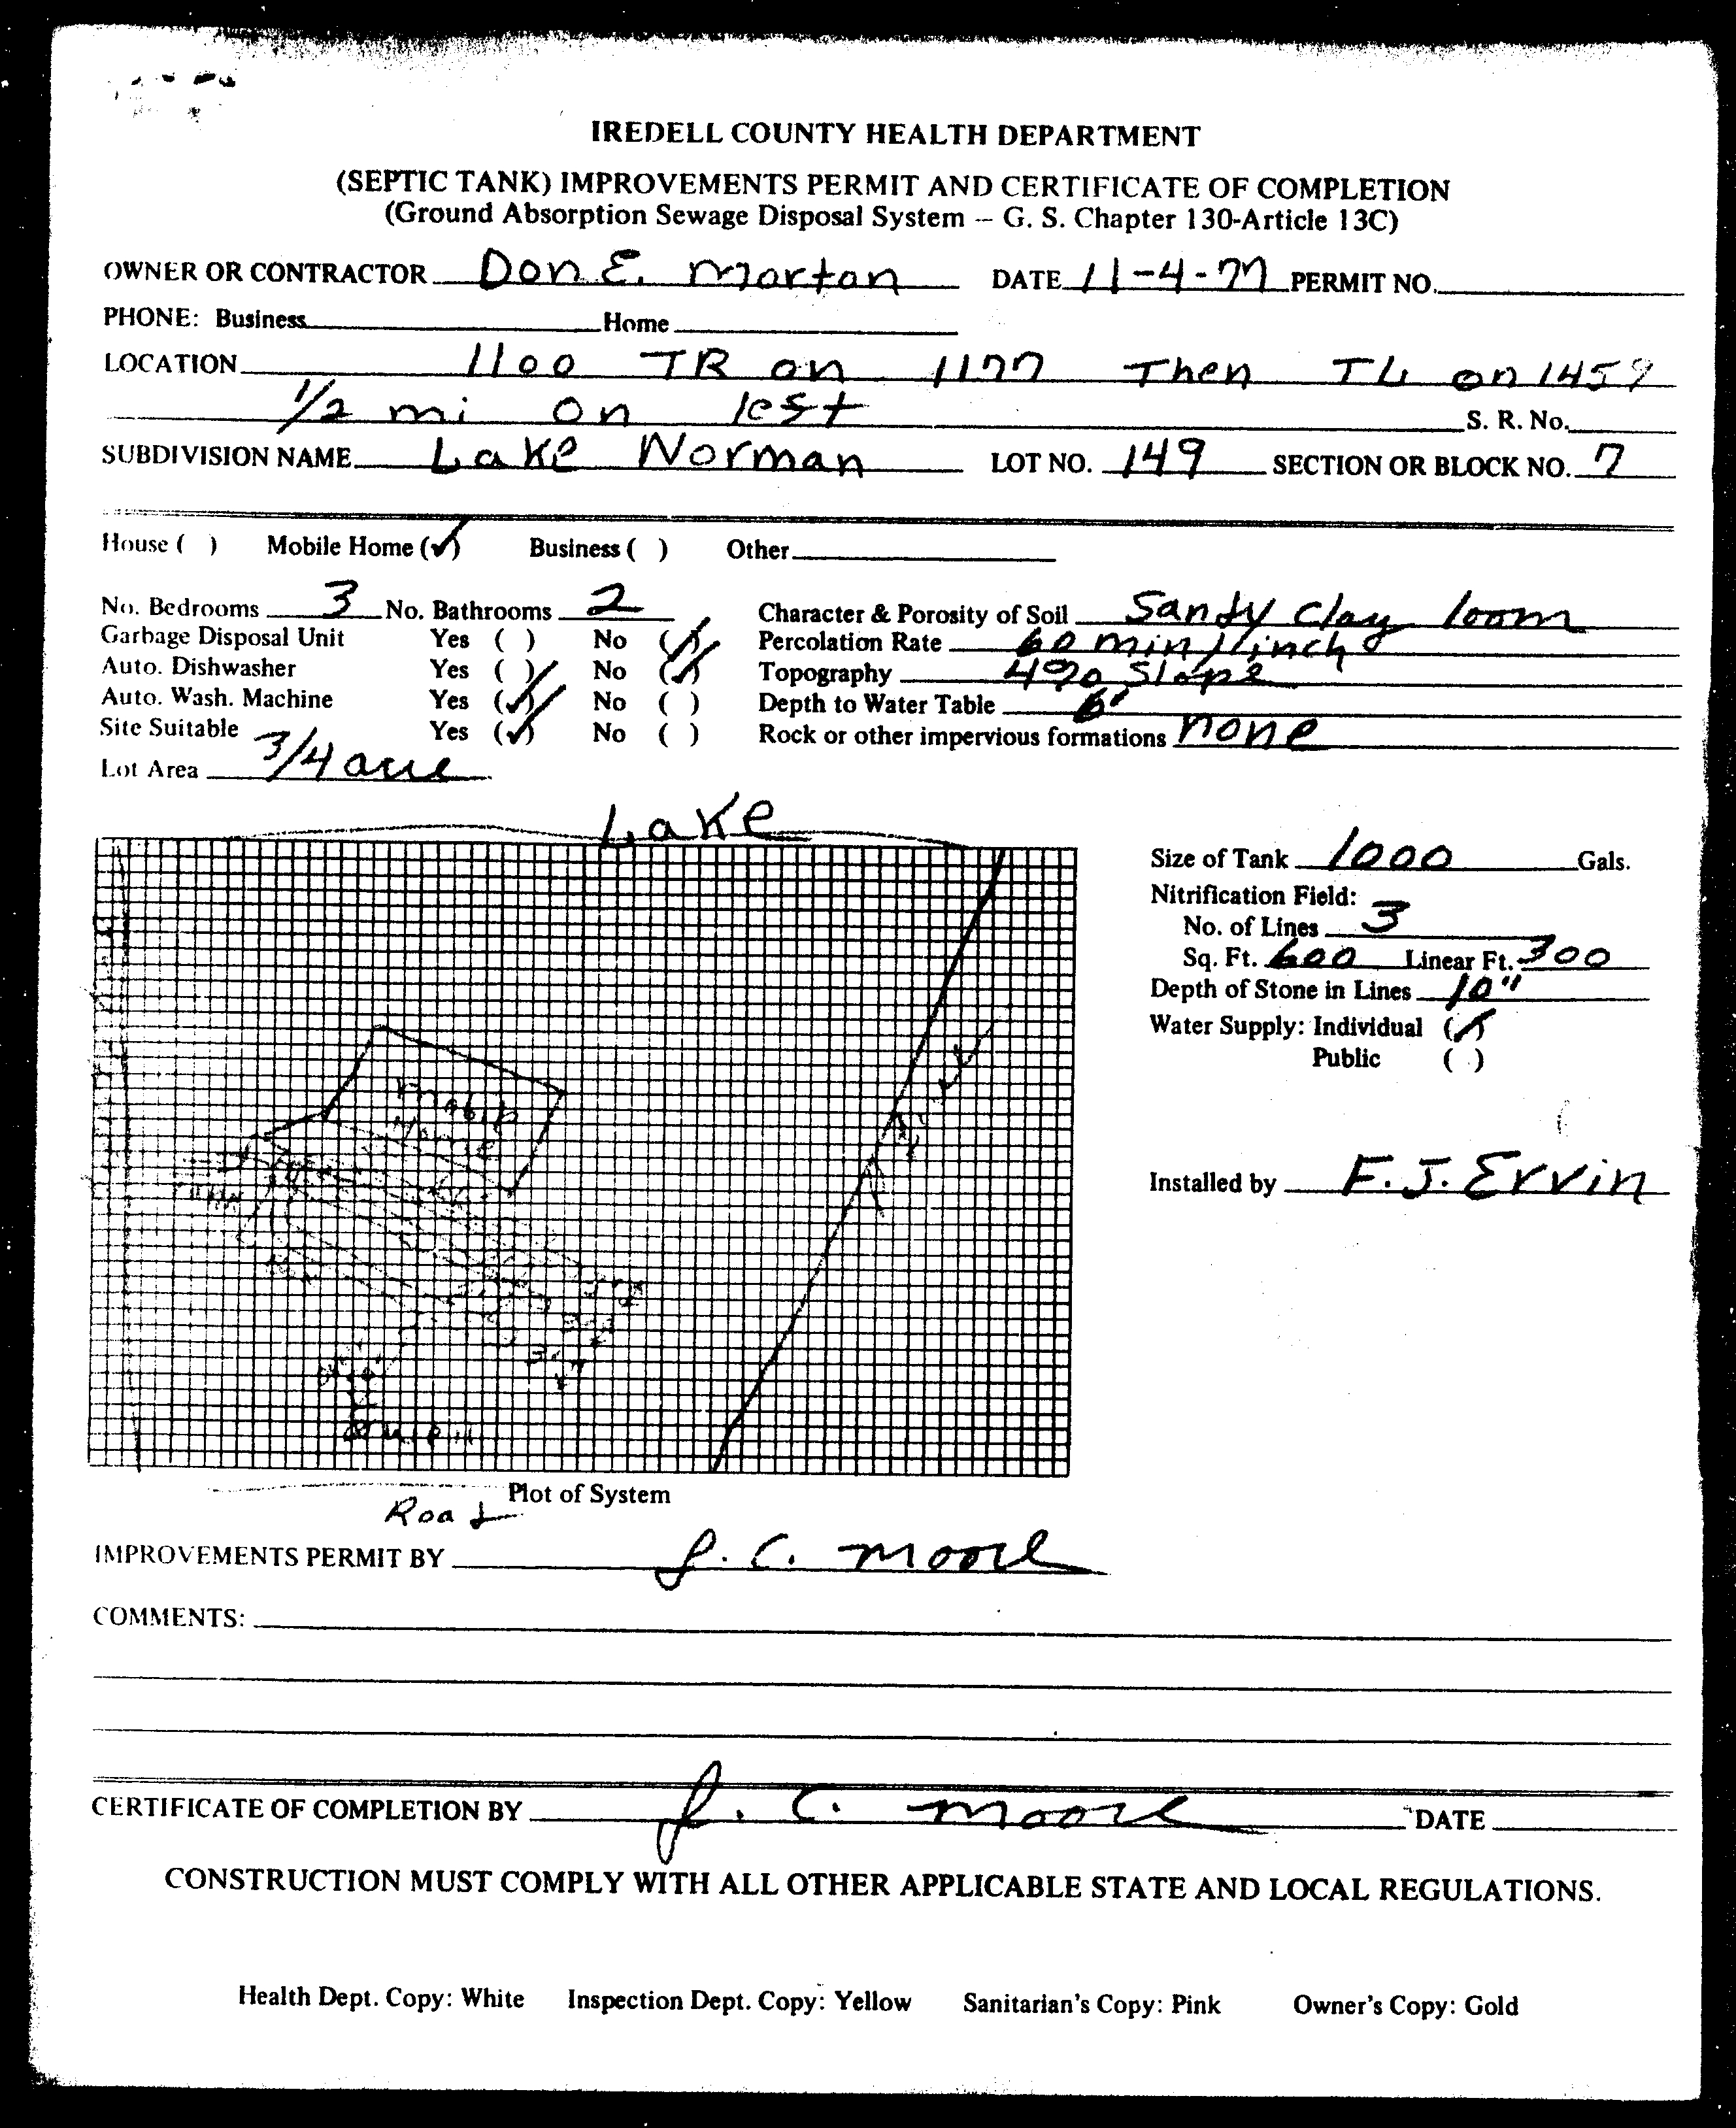 IREDELL COUNTY HEALTH DEPARTMENT
(SEPTIC TANK) IMPROVEMENTS PERMIT AND CERTIFICATE OF COMPLETION
(Ground Absorption Sewage Disposal System – G. S. Chapter 130-Article 13C)
OWNER OR CONTRACTOR Don E. Morton DATE 11-4-77 PERMIT NO.
PHONE: Business Home
LOCATION 1100 TR on 1177 Then TL on 1459
1/2 mi on left S. R. No.
SUBDIVISION NAME Lake Norman LOT NO. 149 SECTION OR BLOCK NO. 7
House ( ) Mobile Home (✓) Business ( ) Other
No. Bedrooms 3 No. Bathrooms 2 Character & Porosity of Soil Sandy Clay loom
Garbage Disposal Unit Yes ( ) No (✓) Percolation Rate 60 min/inch
Auto. Dishwasher Yes ( ) No (✓) Topography 4% Slope
Auto. Wash. Machine Yes (✓) No ( ) Depth to Water Table 6'
Site Suitable Yes (✓) No ( ) Rock or other impervious formations none
Lot Area 3/4 acre
Lake
Size of Tank 1000 Gals.
Nitrification Field:
No. of Lines 3
Sq. Ft. 600 Linear Ft. 300
Depth of Stone in Lines 10"
Water Supply: Individual (✓)
Public ( )
Mobile
Home
Installed by F.J. Ervin
Plot of System
Road
IMPROVEMENTS PERMIT BY J. C. Moore
COMMENTS:
CERTIFICATE OF COMPLETION BY J. C. Moore DATE
CONSTRUCTION MUST COMPLY WITH ALL OTHER APPLICABLE STATE AND LOCAL REGULATIONS.
Health Dept. Copy: White Inspection Dept. Copy: Yellow Sanitarian's Copy: Pink Owner's Copy: Gold